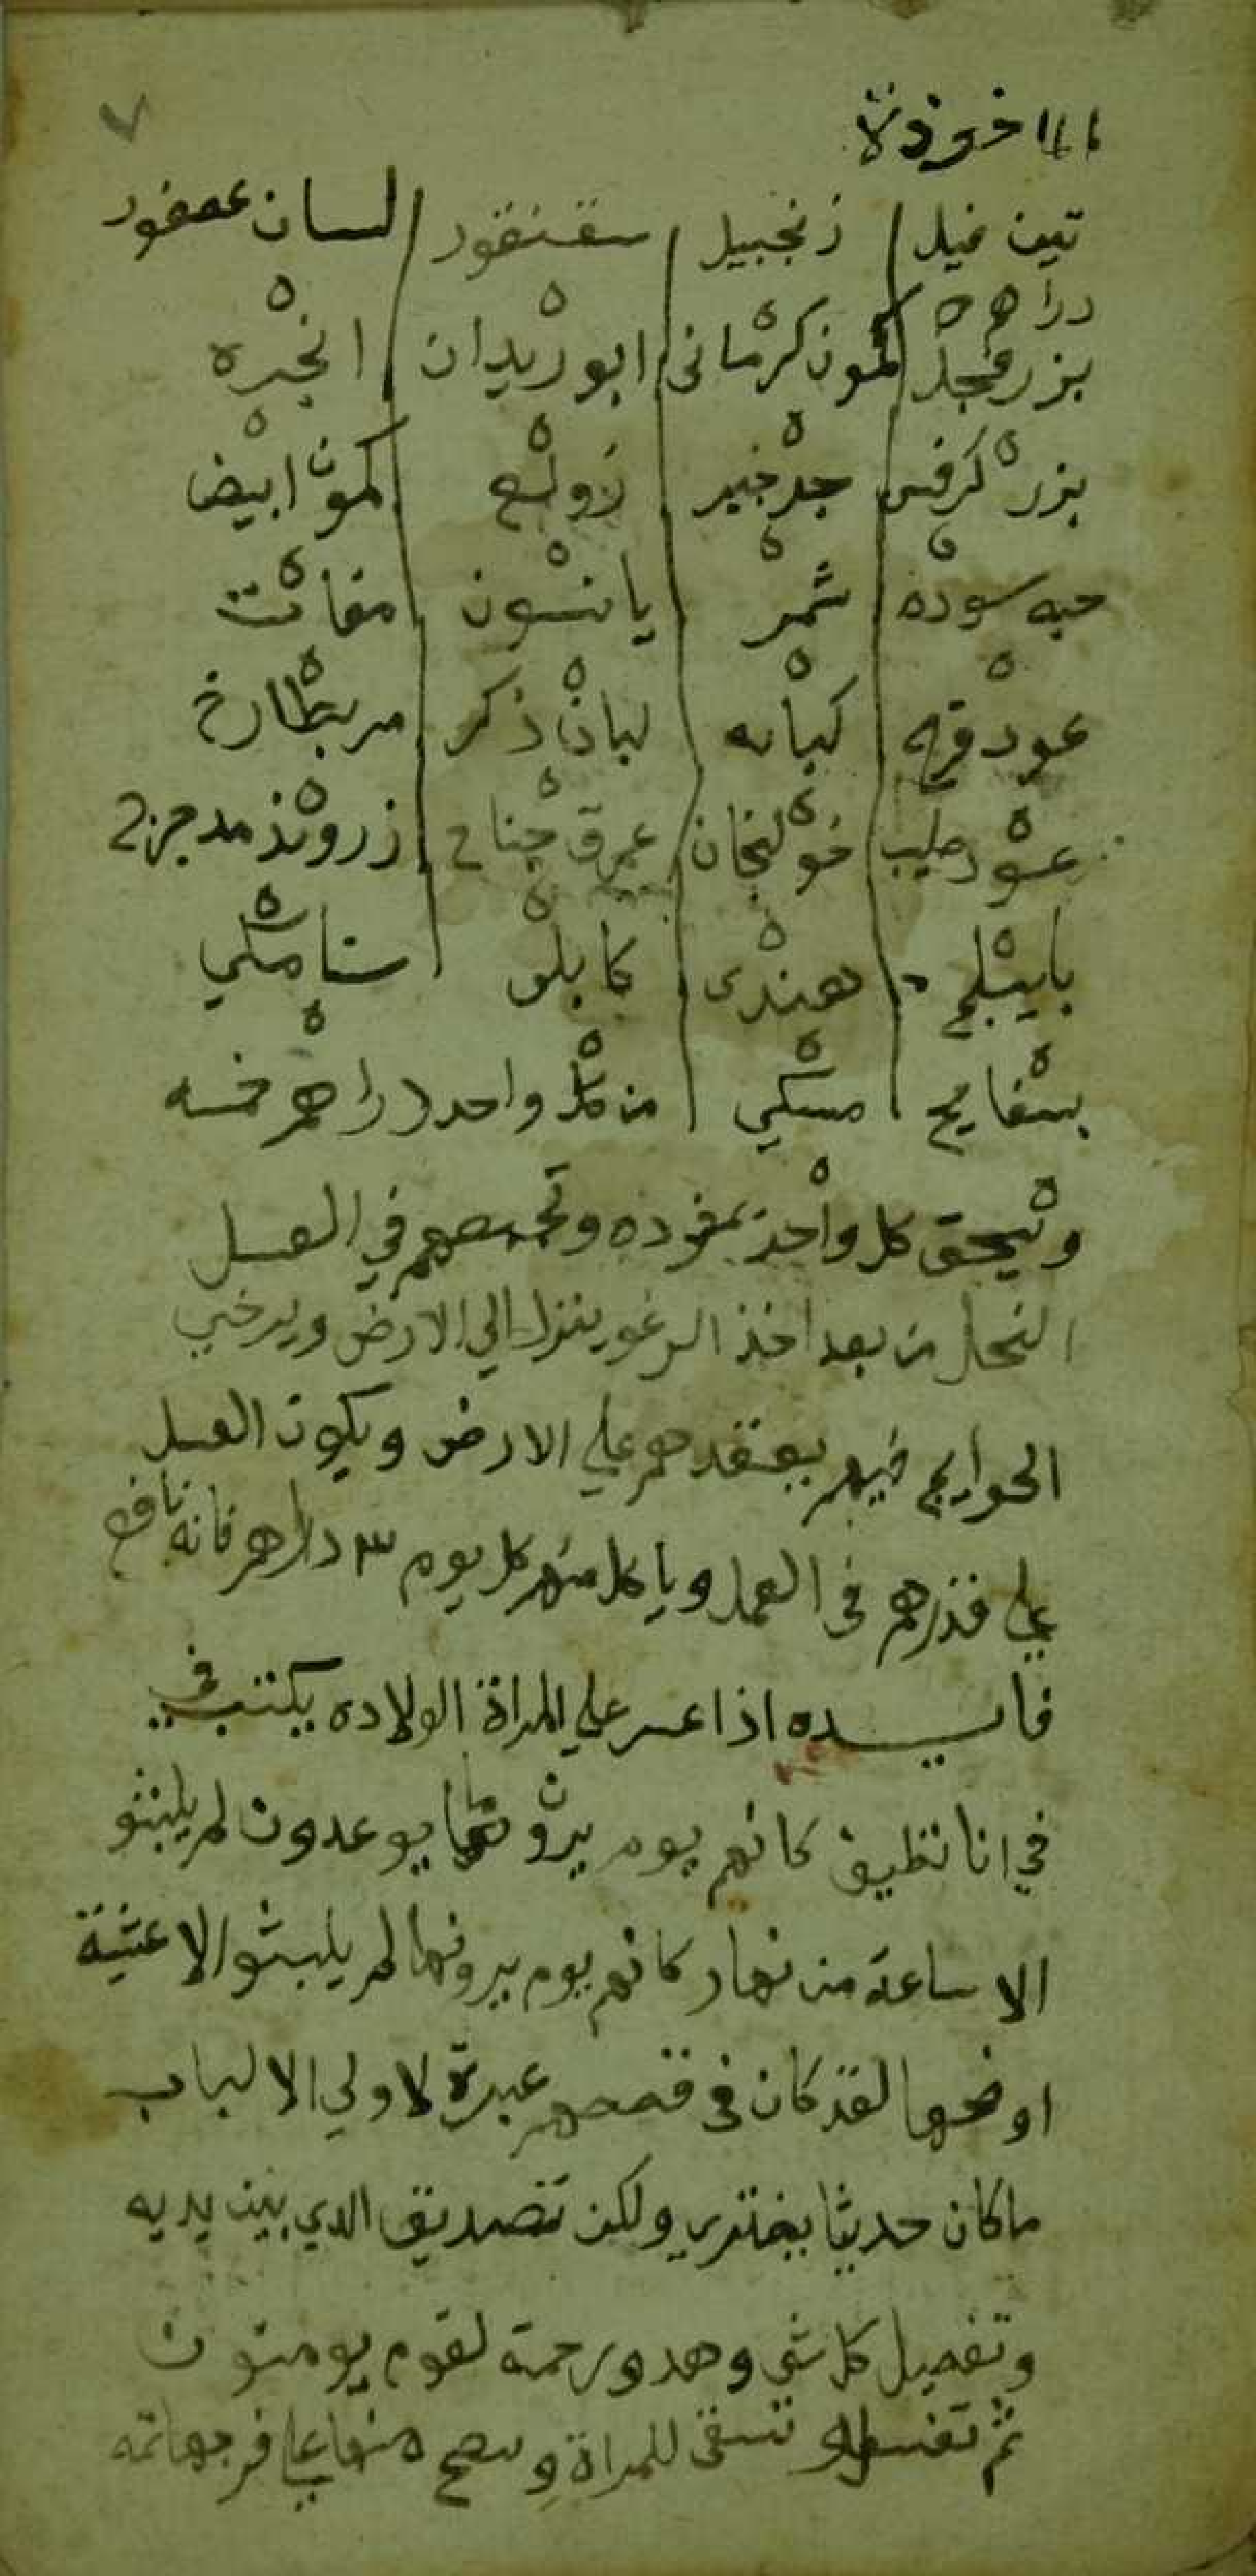 ٧
الماخوذة
تين فيل زنجبيل سقنقور لسان عصفور
دراهم ٥ ٥ ٥
بزر فجل كمون كرمانى ابو زيدان انجره
٥ ٥ ٥ ٥
بزر كرفس جرجير كمون ابيض
٥ ٥ ٥ ٥
حبه سوده شمر يانسون مغات
٥ ٥ ٥ ٥
عود قرح كبابه لبان ذكر مر بطارخ
٥ ٥ ٥ ٥
عود صليب خولنجان عرق جناح زروند مدحرج
٥ ٥ ٥ ٥
هندى كابلى سنا مكي
٥ ٥ ٥ ٥
بسفايج مستكي من كل واحد دراهم خمسه
٥ ٥
وتسحق كل واحد بمفرده وتحمصهم في العسل
النحل من بعد اخذ الرغو ينزل الي الارض ويرخي
الحوايج فيهم يعقدهم علي الارض ويكون العسل
علي قدرهم فى العمل وياكل منهم كل يوم ٣ دراهم فانه نافع
فايده اذا عسر علي المراة الولاده يكتب في
في انا نظيف كانهم يوم يرون ما يوعدون لم يلبثو
الا ساعة من نهار كانهم يوم يرونها لم يلبثو الا عشية
او ضحها لقد كان فى قصصهم عبرة لاولي الالباب
ما كان حديثا يفترى ولكن تصديق الدي بين يديه
وتفصيل كل شى وهدو رحمة لقوم يومنون
ثم تغسله وتسقى للمراة و منها علي فرجها تمه